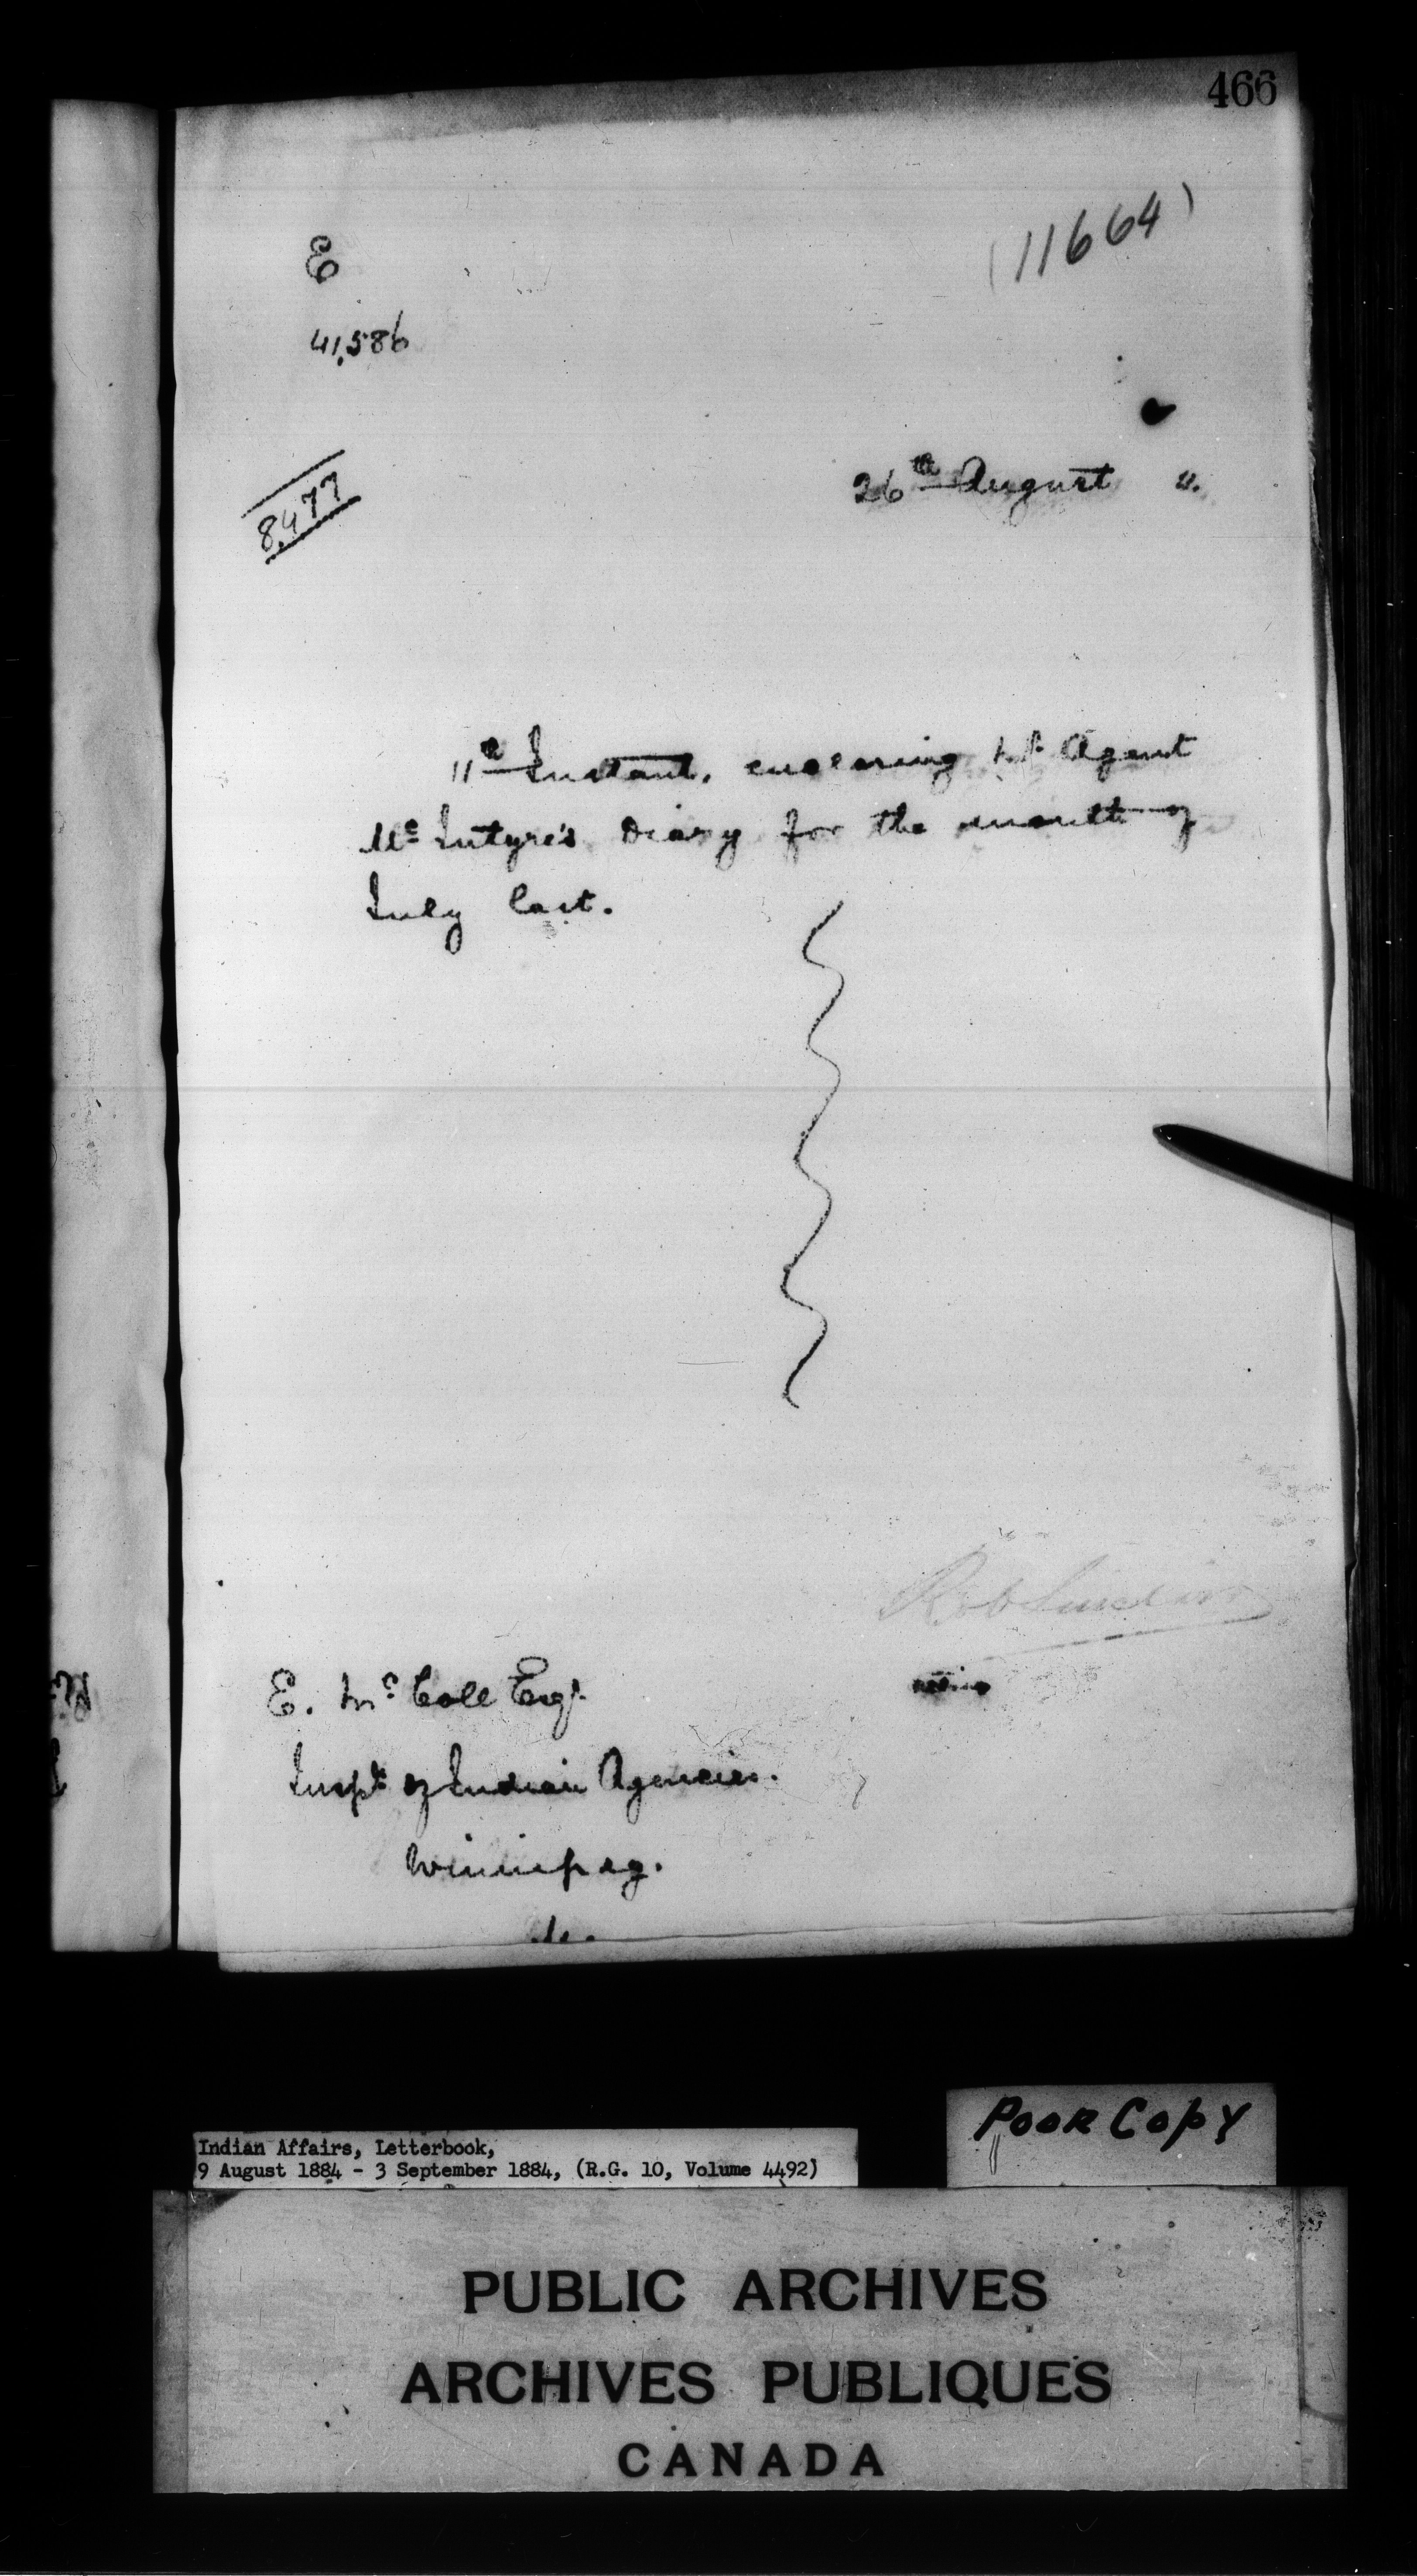 466
(11664)
E
41,586
8,477
26th August ".
11th Instant, enclosing Agent
McIntyre's Diary for the month of
July last.
E. McColl Esq.
Inspr. of Indian Agencies.
Winnipeg.
Poor Copy
Indian Affairs, Letterbook,
9 August 1884 - 3 September 1884, (R.G. 10, Volume 4492)
PUBLIC ARCHIVES
ARCHIVES PUBLIQUES
CANADA